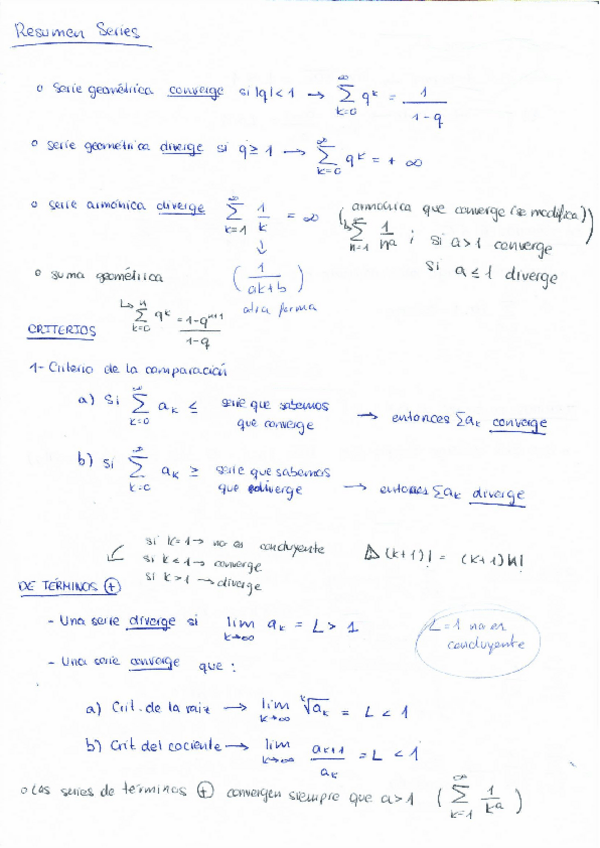 Resumen Series
o serie geométrica converge si |q| < 1 → ∑_{k=0}^{∞} q^k = 1/(1-q)
o serie geométrica diverge si q ≥ 1 → ∑_{k=0}^{∞} q^k = + ∞
o serie armónica diverge ∑_{k=1}^{∞} 1/k = ∞
(armónica que converge (se modifica))
↳ ∑_{n=1}^{∞} 1/n^a ; si a > 1 converge
si a ≤ 1 diverge
↓
(1/(ak+b))
otra forma
o suma geométrica
↳ ∑_{k=0}^{n} q^k = (1-q^{n+1})/(1-q)
CRITERIOS
1- Criterio de la comparación
a) Si ∑_{k=0}^{∞} a_k ≤ serie que sabemos que converge → entonces ∑a_k converge
b) si ∑_{k=0}^{∞} a_k ≥ serie que sabemos que diverge → entonces ∑a_k diverge
si K=1 → no es concluyente
si K<1 → converge
si K>1 → diverge
(k+1)! = (k+1)k!
DE TÉRMINOS ⊕
- Una serie diverge si lim_{k→∞} a_k = L > 1
L=1 no es concluyente
- Una serie converge que :
a) Crit. de la raiz → lim_{k→∞} ᵏ√a_k = L < 1
b) Crit del cociente → lim_{k→∞} a_{k+1}/a_k = L < 1
o Las series de términos ⊕ convergen siempre que a>1 (∑_{k=1}^{∞} 1/k^a)